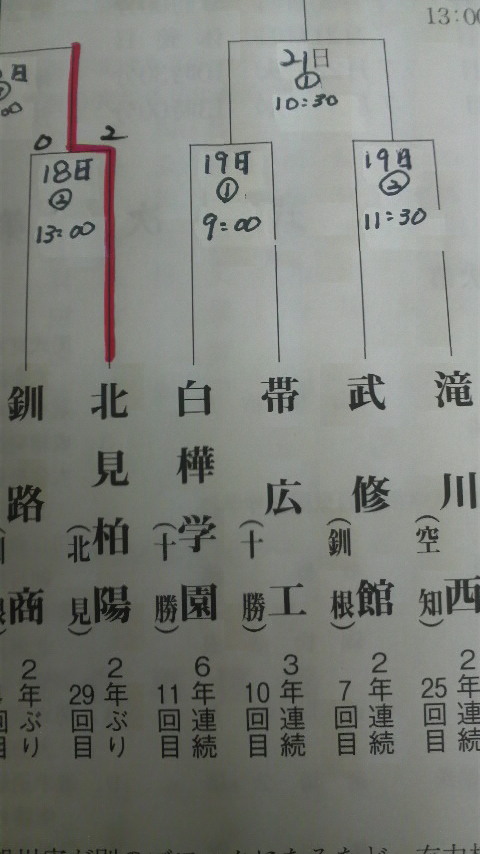 13:00
21日
①
10:30
0 2
18日
②
13:00
19日
①
9:00
19日
②
11:30
滝川西
(空知)
2年連続
25回目
武修館
(釧根)
2年連続
7回目
帯広工
(十勝)
3年連続
10回目
白樺学園
(十勝)
6年連続
11回目
北見柏陽
(北見)
2年ぶり
29回目
釧路商
2年ぶり
回目